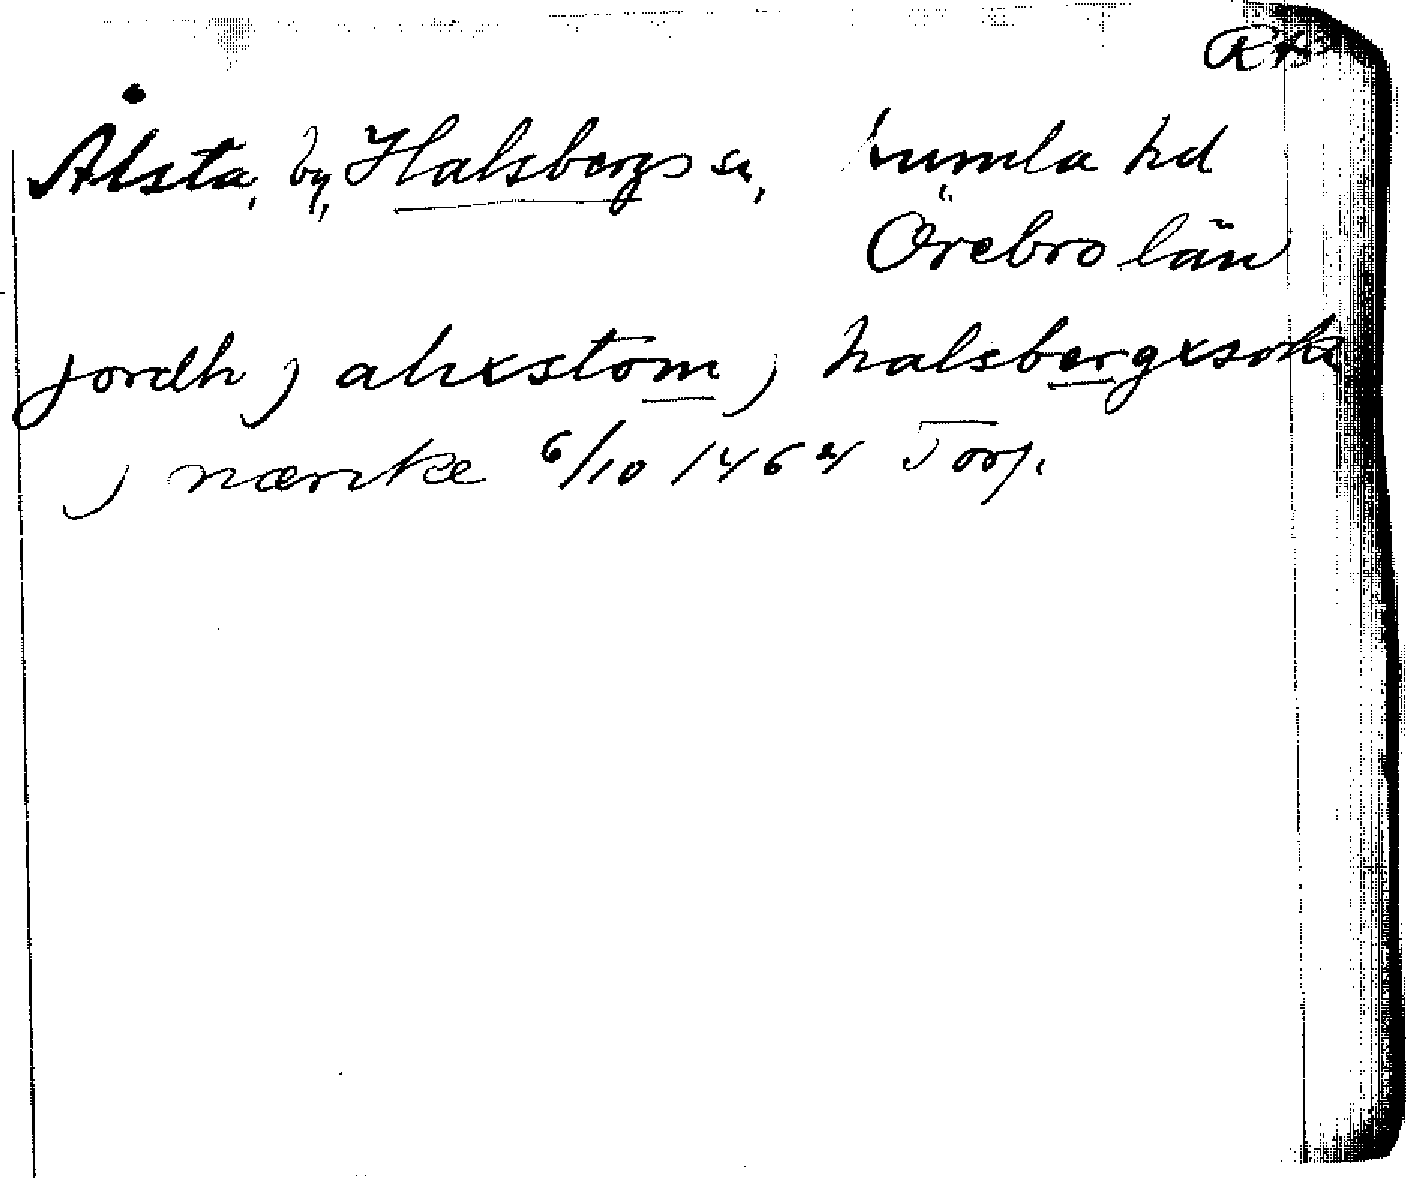 RA
Ålsta, by, Halsbergs sn, Kumla hd
Örebro län
jordh j alixstom j halsbergxsokn
j nærike 6/10 1464 Torp.